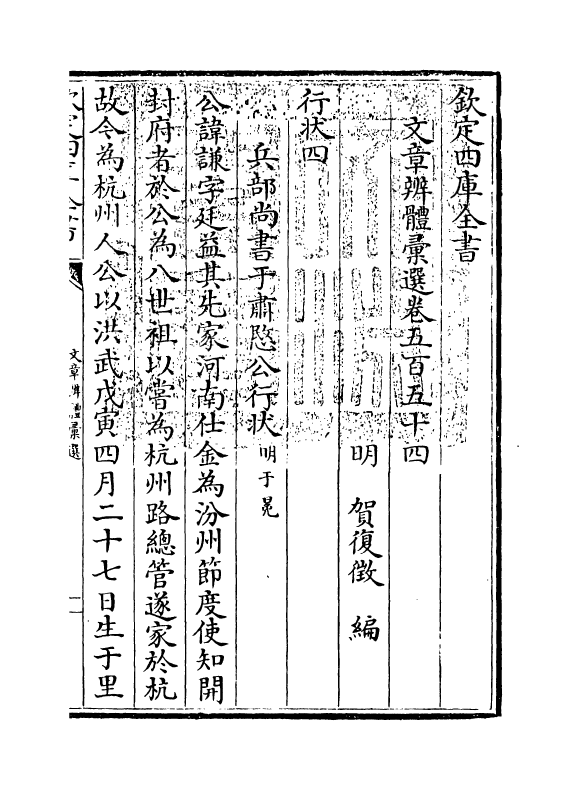 欽定四庫全書
文章辨體彙選卷五百五十四
明 賀復徵 編
行狀四
兵部尚書于肅愍公行狀 明于冕
公諱謙字廷益其先家河南仕金為汾州節度使知開
封府者於公為八世祖以嘗為杭州路總管遂家於杭
故今為杭州人公以洪武戊寅四月二十七日生于里
欽定四庫全書
文章辨體彙選
一